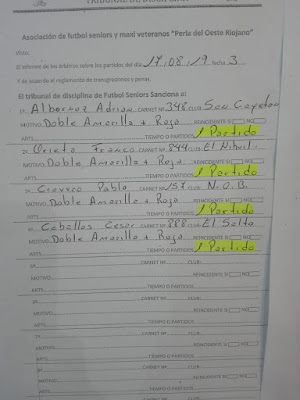 TRIBUNAL DE DISCIPLINA
Asociación de futbol seniors y maxi veteranos "Perla del Oeste Riojano"
Visto:
El informe de los árbitros sobre los partidos del día 17/08/19 fecha 3
Y de acuerdo el reglamento de transgresiones y penas.
El tribunal de disciplina de Futbol Seniors Sanciona a:
1º Albornoz Adrian CARNET Nº 348 San Cayetano
MOTIVO: Doble Amarilla + Roja REINCIDENTE SI NO
ARTS. TIEMPO O PARTIDOS: 1 Partido
2º Franco CARNET Nº 844 El
MOTIVO: Doble Amarilla + Roja REINCIDENTE SI NO
ARTS. TIEMPO O PARTIDOS: 1 Partido
3º Pablo CARNET Nº 157 N.O.B.
MOTIVO: Doble Amarilla + Roja REINCIDENTE SI NO
ARTS. TIEMPO O PARTIDOS: 1 Partido
4º Ceballos Cesar CARNET Nº 888 El Salto
MOTIVO: Doble Amarilla + Roja REINCIDENTE SI NO
ARTS. TIEMPO O PARTIDOS: 1 Partido
5º CARNET Nº
MOTIVO: REINCIDENTE SI NO
ARTS. TIEMPO O PARTIDOS:
6º CARNET Nº
MOTIVO: REINCIDENTE SI NO
ARTS. TIEMPO O PARTIDOS:
7º CARNET Nº
MOTIVO: REINCIDENTE SI NO
ARTS. TIEMPO O PARTIDOS:
8º CARNET Nº
MOTIVO: REINCIDENTE SI NO
ARTS. TIEMPO O PARTIDOS: